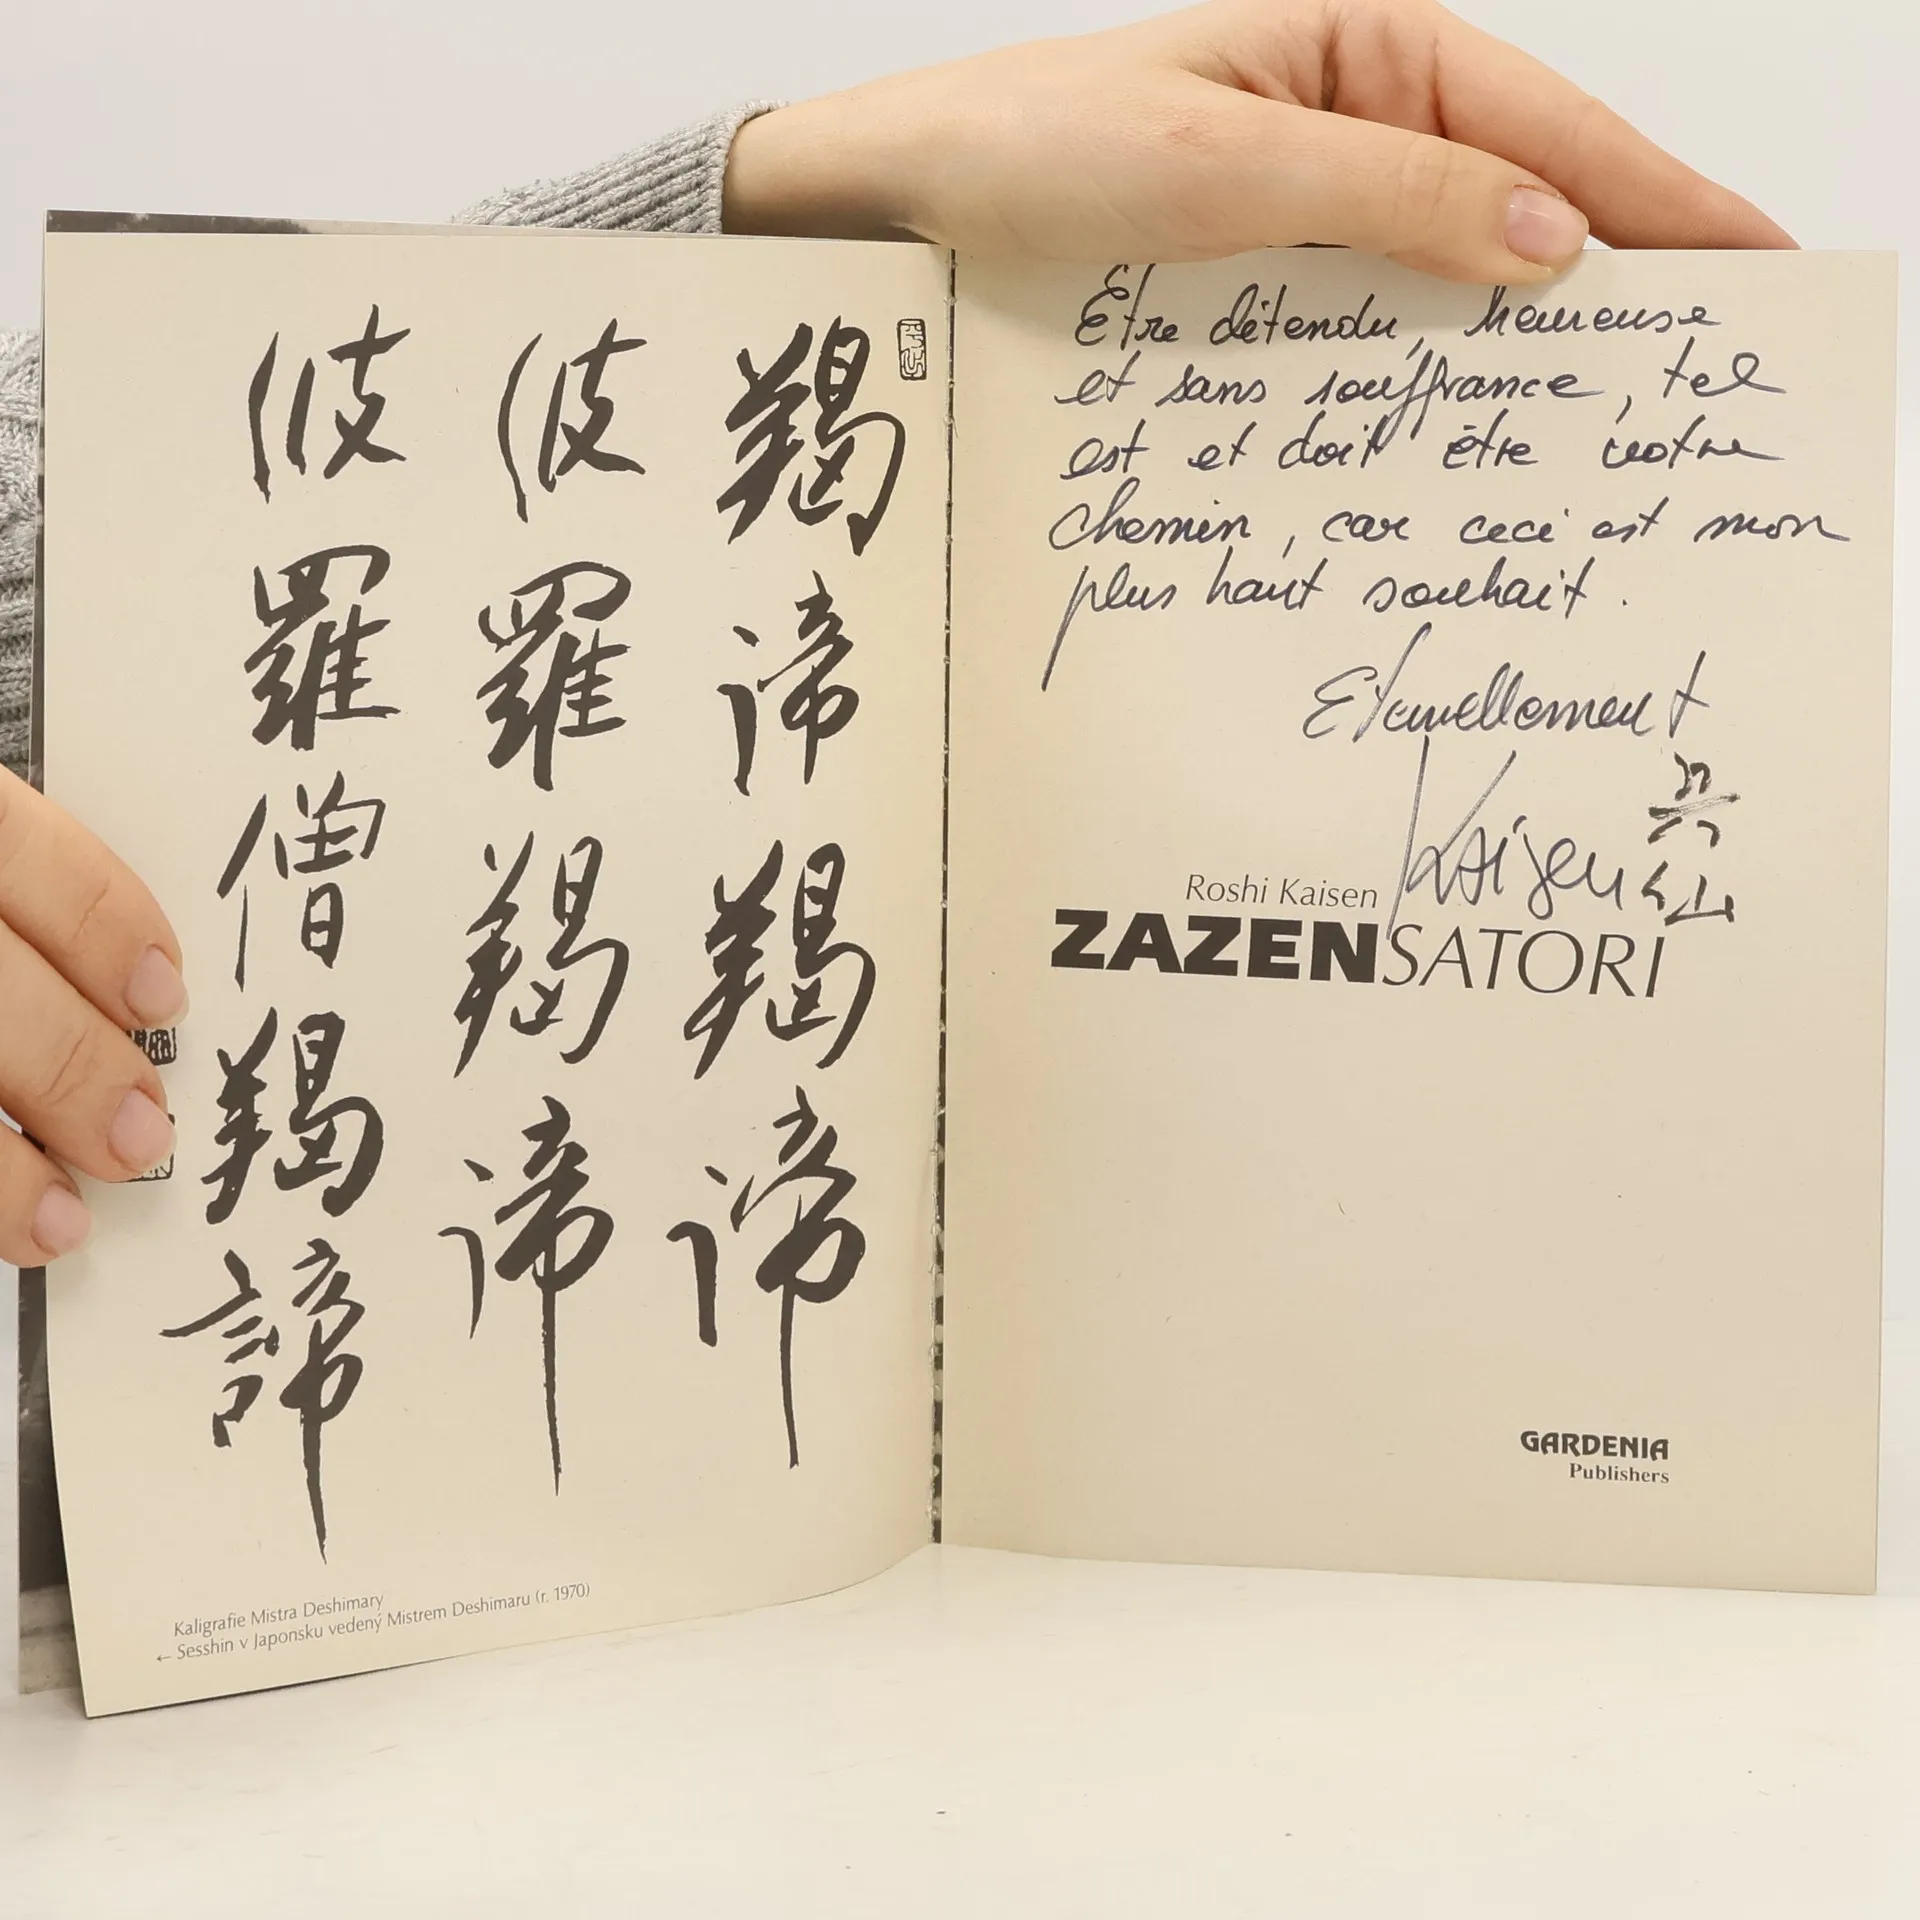 羯諦羯諦
彼羅羯諦
彼羅僧羯諦
Kaligrafie Mistra Deshimary
← Sesshin v Japonsku vedený Mistrem Deshimaru (r. 1970)
Être détendu, heureuse
et sans souffrance, tel
est et doit être votre
chemin, car ceci est mon
plus haut souhait.
Eternellement
Kaisen
Roshi Kaisen
ZAZENSATORI
GARDENIA
Publishers